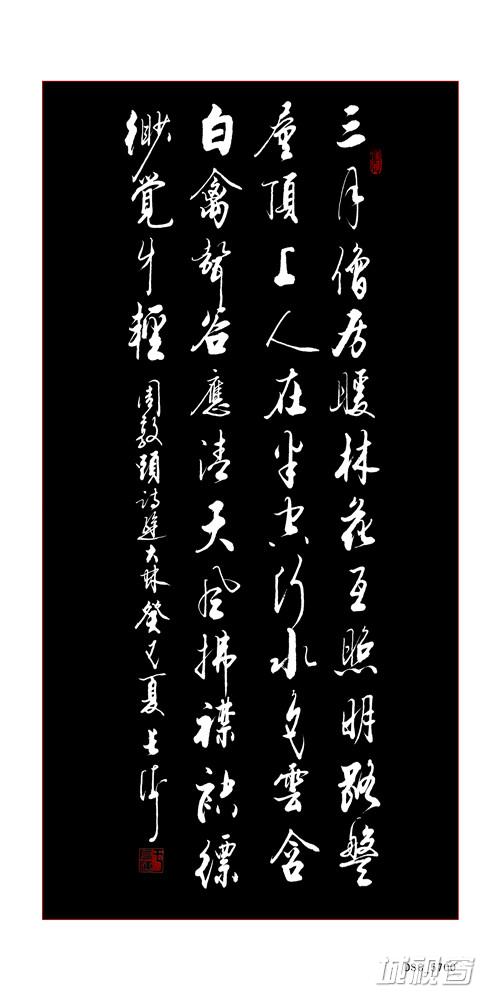 三月僧房暖林花互照明路盤
層頂上人在半空行水色雲含
白禽聲谷應清天風拂襟袂縹
緲覺身輕 周敦頤詩遊大林 癸巳夏
城视窗